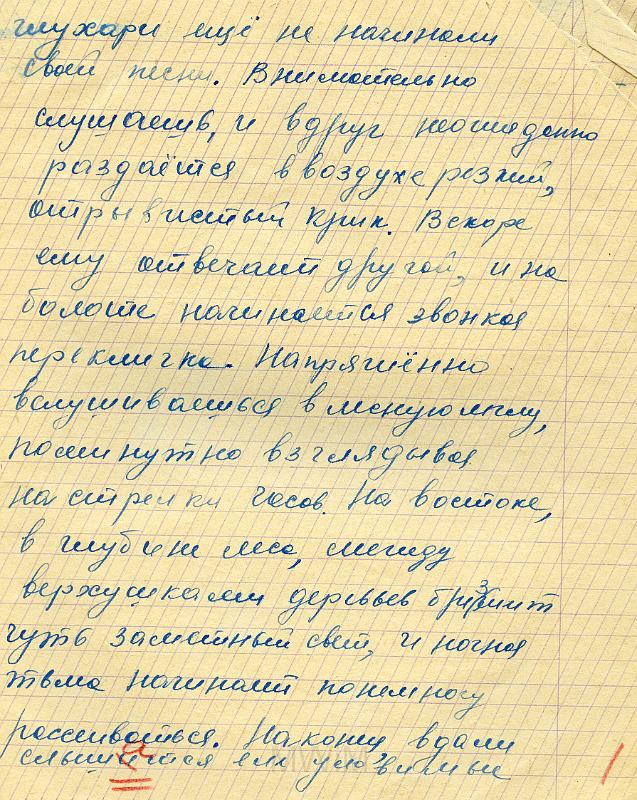 глухари ещё не начинали
своей песни. Внимательно
слушаешь, и вдруг неожиданно
раздаётся в воздухе резкий,
отрывистый крик. Вскоре
ему отвечает другой, и на
болоте начинается звонкая
перекличка. Напряжённо
вслушиваешься в лесную мглу,
поминутно взглядывая
на стрелки часов. На востоке,
в глубине леса, между
верхушками деревьев бризжит
чуть заметный свет, и ночная
тьма начинает понемногу
рассеиваться. Наконец вдали
слышится еле уловимые
я